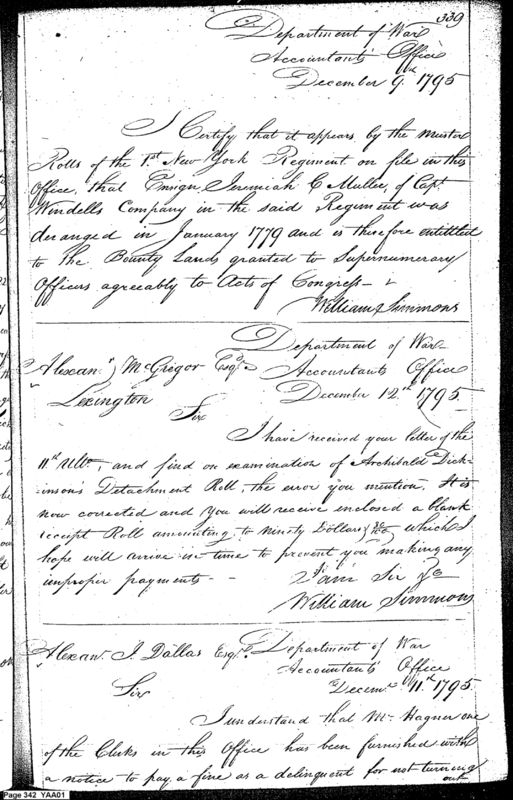 339
Department of War
Accountants Office
December 9th 1795
I Certify that it appears by the Muster
Rolls of the 1st New York Regiment on file in this
Office, that Ensign Jeremiah C Muller, of Capt
Wendells Company in the said Regiment was
deranged in January 1779 and is therefore entitled
to the Bounty Lands granted to Supernumerary
Officers agreeably to Acts of Congress
William Simmons
Department of War
Alexanr McGregor Esqr Accountants Office
Lexington December 12th 1795
Sir
I have received your letter of the
11th Ulto, and find on examination of Archibald Dick-
inson's Detachment Roll, the error you mention. It is
now corrected and you will receive inclosed a blank
receipt Roll amounting to Ninety Dollars which I
hope will arrive in time to prevent you making any
improper payments
I am Sir &c
William Simmons
Alexanr J. Dallas Esqr. Department of War
Accountants Office
Sir Decemr 11th 1795
I understand that Mr Hagner one
of the Clerks in this Office has been furnished with
a notice to pay a fine as a delinquent for not turning
out
Page 342 YAA01